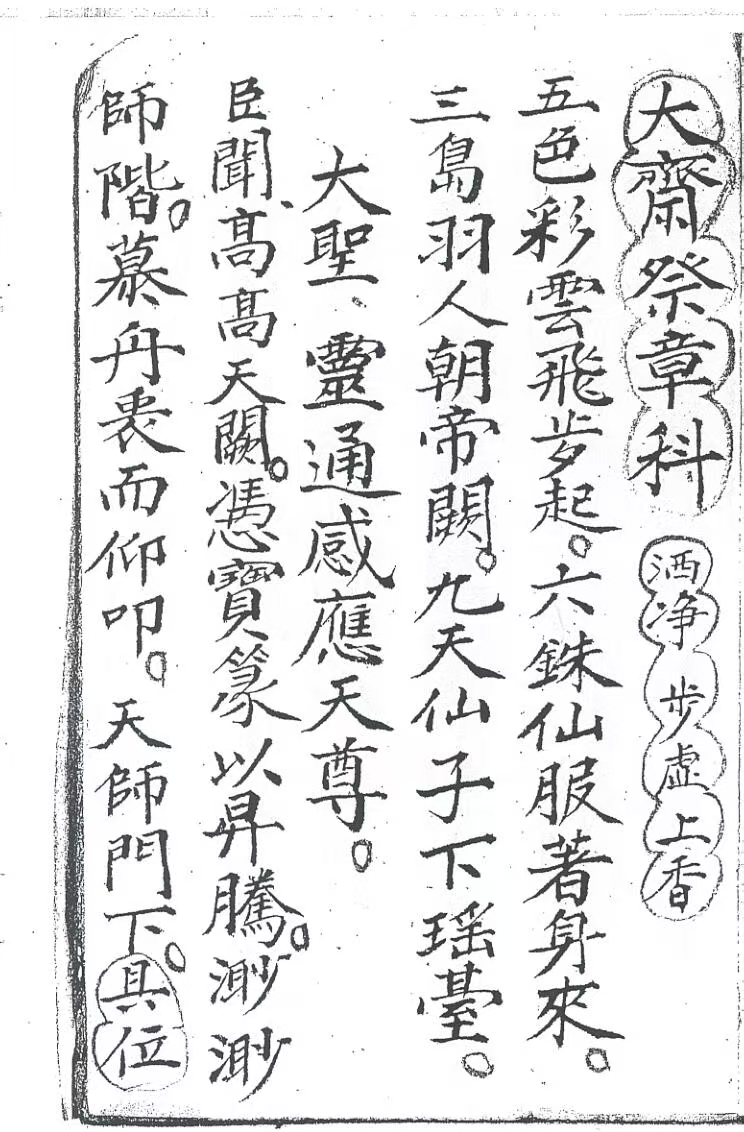 大齋祭章科 洒净 步虛上香
五色彩雲飛步起。六銖仙服著身來。
三島羽人朝帝闕。九天仙子下瑶臺。
大聖、靈通感應天尊。
臣聞、高高天闕。憑寶篆以昇騰。渺渺
師階。慕丹表而仰叩。天師門下。具位